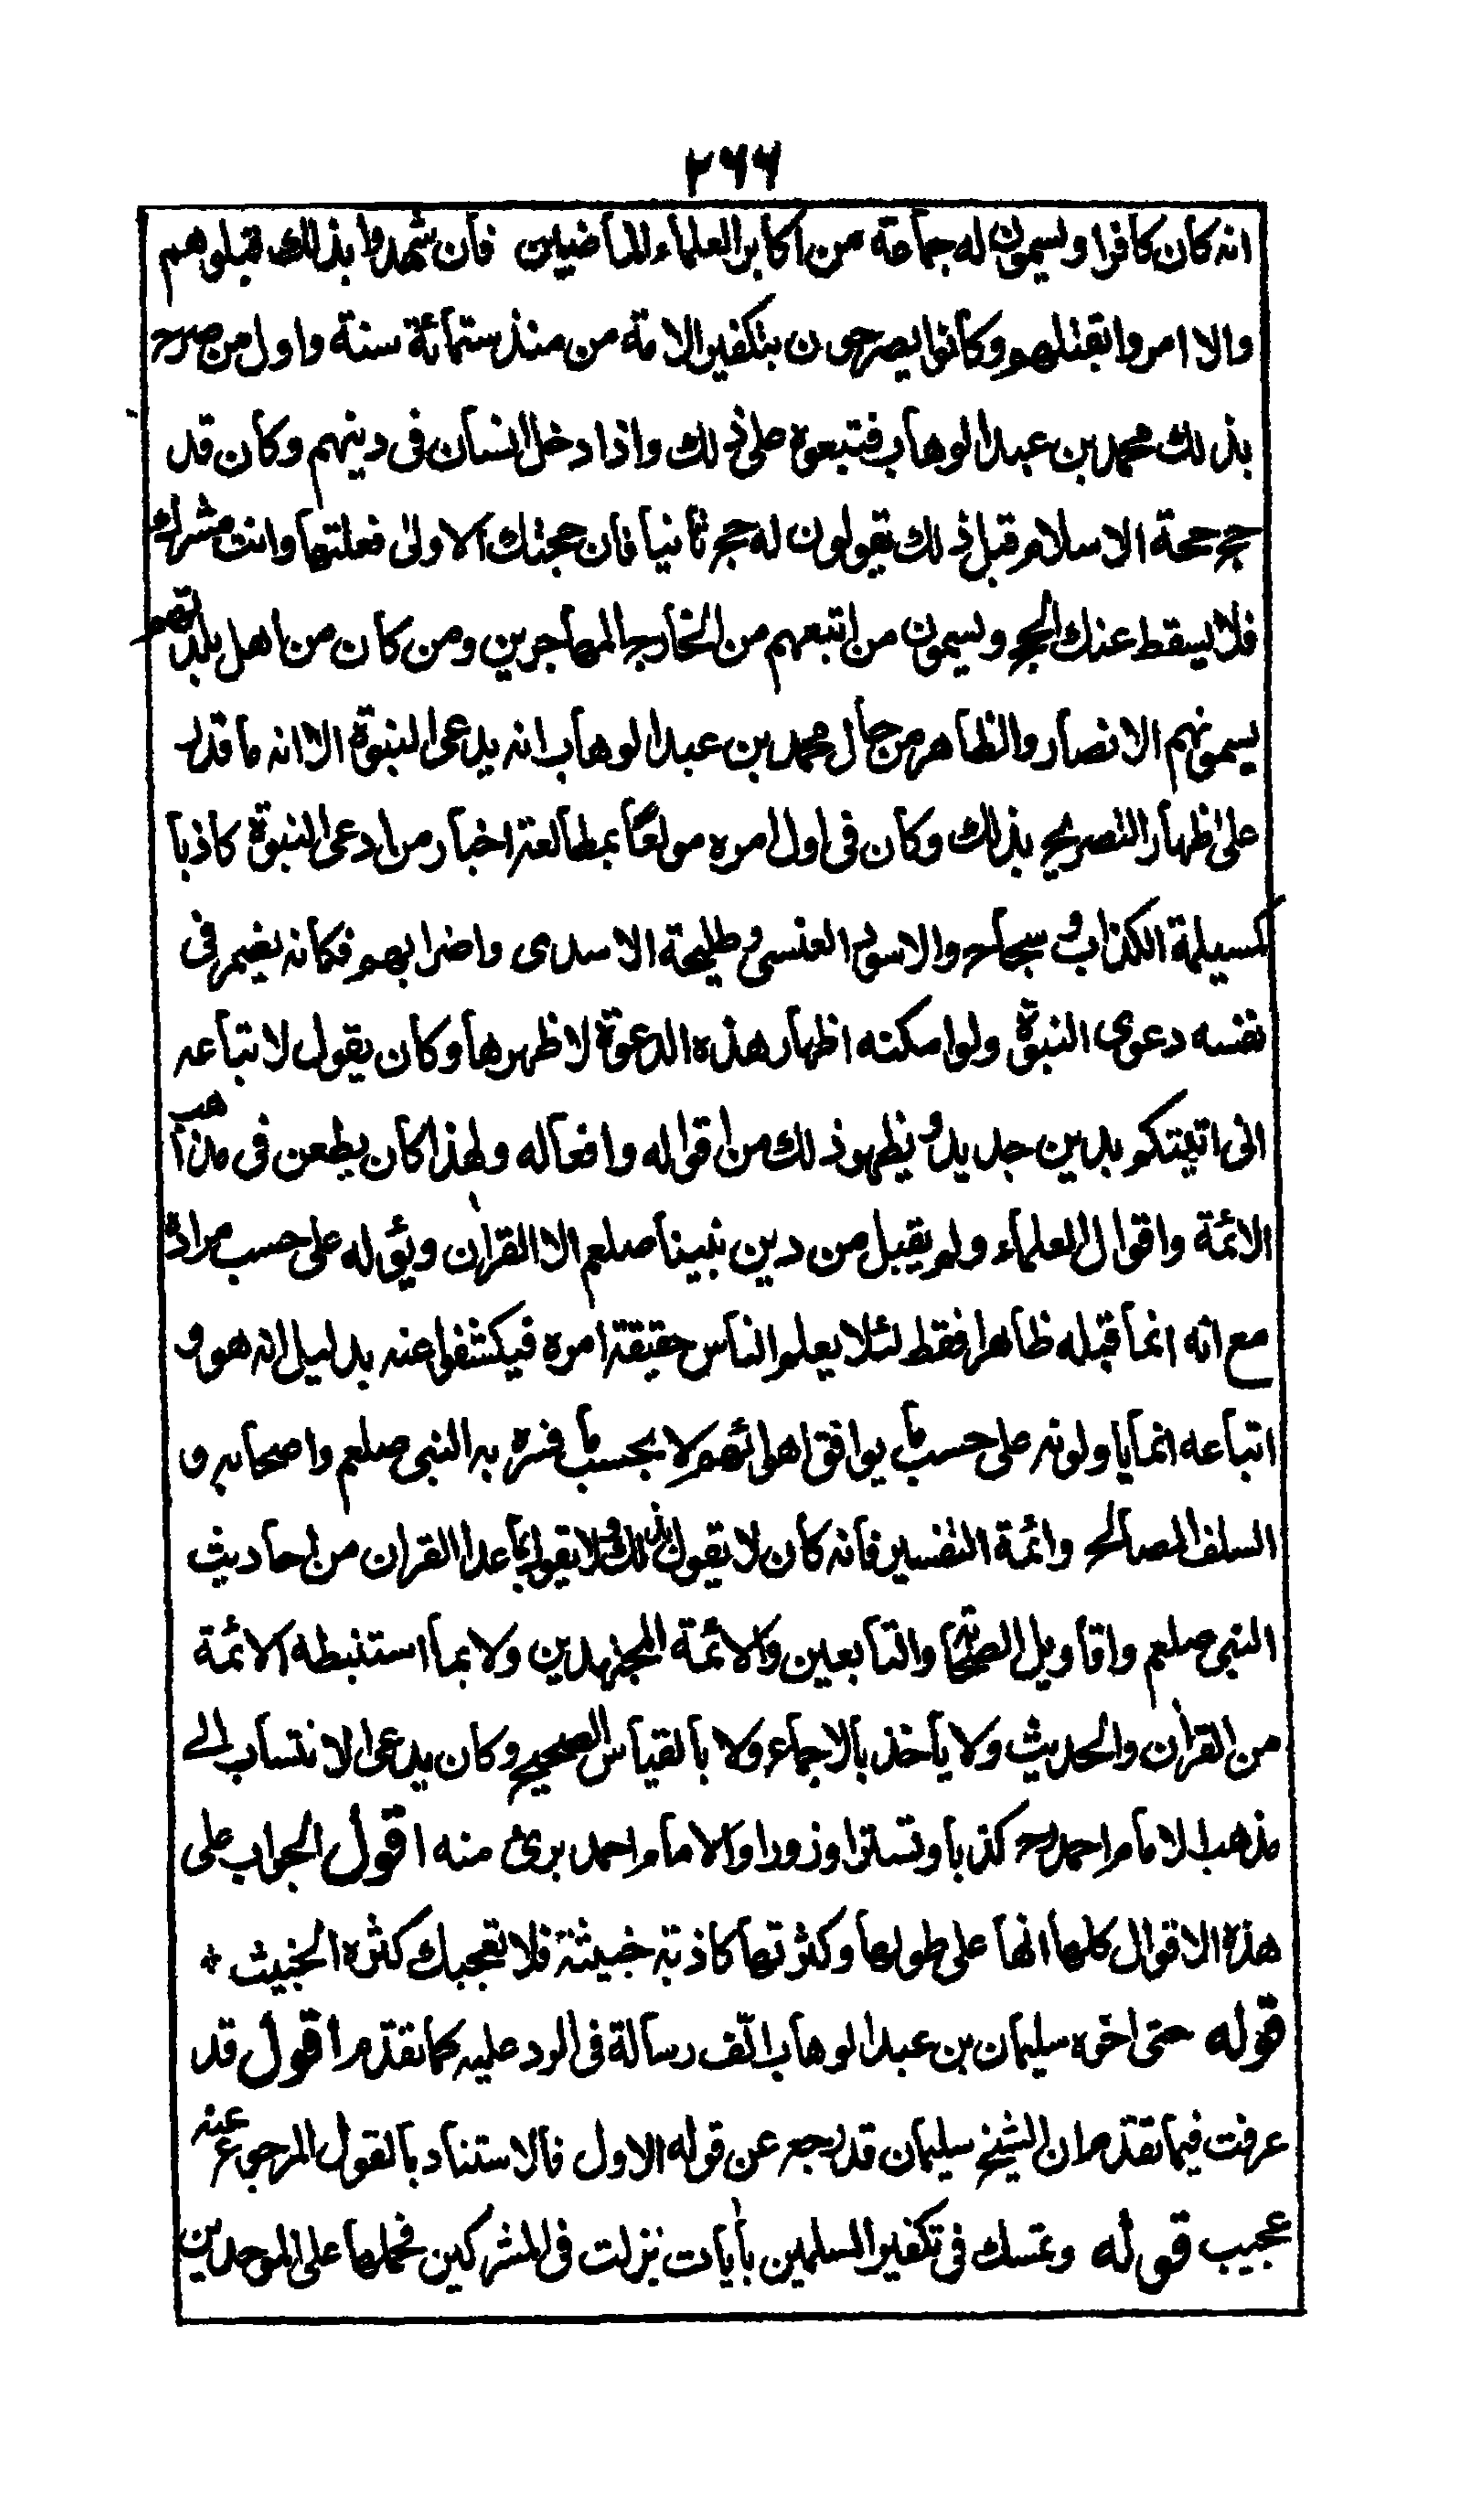 ٢٦٦
انه كان كافرا ويسمون له جماعة من اكابر العلماء الماضيين فان شهدوا بذلك قبلوهم
والا امروا بقتلهم وكانوا يصرحون بتكفير الامة من منذ ستمائة سنة واول من صرح
بذلك محمد بن عبد الوهاب فتبعوه على ذلك واذا دخل انسان في دينهم وكان قد
حج حجة الاسلام قبل ذلك يقولون له حج ثانيا فان حجتك الاولى فعلتها وانت مشرك
فلا يسقط عنك الحج ويسمون من اتبعهم من الخارج المهاجرين ومن كان من اهل بلدتهم
يسمونهم الانصار والظاهر من حال محمد بن عبد الوهاب انه يدعى النبوة الا انه ما قدر
على اظهار التصريح بذلك وكان في اول امره مولعا بمطالعة اخبار من ادعى النبوة كاذبا
كمسيلمة الكذاب وسجاح والاسود العنسي وطليحة الاسدى واضرابهم فكانه يضمر في
نفسه دعوى النبوة ولو امكنه اظهار هذه الدعوة لاظهرها وكان يقول لاتباعه
انى اتيتكم بدين جديد ويظهر ذلك من اقواله وافعاله ولهذا كان يطعن في مذاهب
الائمة واقوال العلماء ولم يقبل من دين نبينا صلعم الا القران ويؤله على حسب مراده
مع انه انما قبله ظاهرا فقط لئلا يعلم الناس حقيقة امره فيكشفوا عنه بدليل انه هو و
اتباعه انما ياولونه على حسب ما يوافق اهوائهم لا بحسب ما فسره به النبي صلعم واصحابه و
السلف الصالح وائمة التفسير فانه كان لا يقول بذلك ولا يقول بما عدا القران من احاديث
النبي صلعم واقاويل الصحابة والتابعين والائمة المجتهدين ولا بما استنبطه الائمة
من القران والحديث ولا ياخذ بالاجماع ولا بالقياس الصحيح وكان يدعى الانتساب الى
مذهب الامام احمد رح كذبا وتسترا وزورا والامام احمد برئ منه اقول الجواب على
هذه الاقوال كلها انها على طولها وكثرتها كاذبة خبيثة فلا تعجبك كثرة الخبيث *
قوله حتى اخوه سليمان بن عبد الوهاب الّف رسالة في الرد عليه كما تقدم اقول قد
عرفت فيما تقدم ان الشيخ سليمان قد رجع عن قوله الاول فالاستناد بالقول المرجوع عنه
عجيب قوله وتمسك في تكفير المسلمين بأيات نزلت في المشركين فحملها على الموحدين